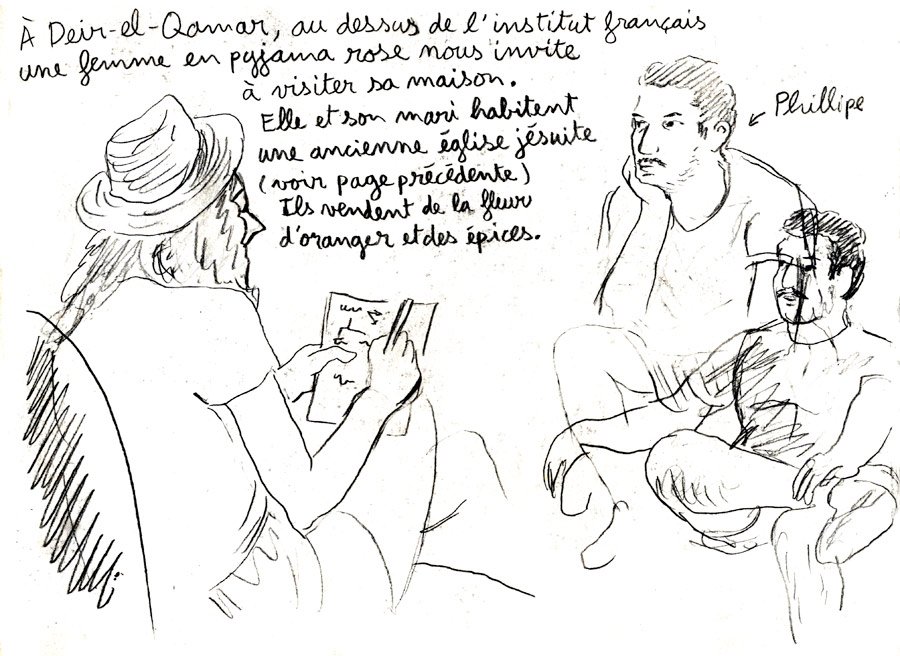 À Deir-el-Qamar, au dessus de l'institut français
une femme en pyjama rose nous invite
à visiter sa maison.
Elle et son mari habitent
une ancienne église jésuite
(voir page précédente)
Ils vendent de la fleur
d'oranger et des épices.
← Phillipe